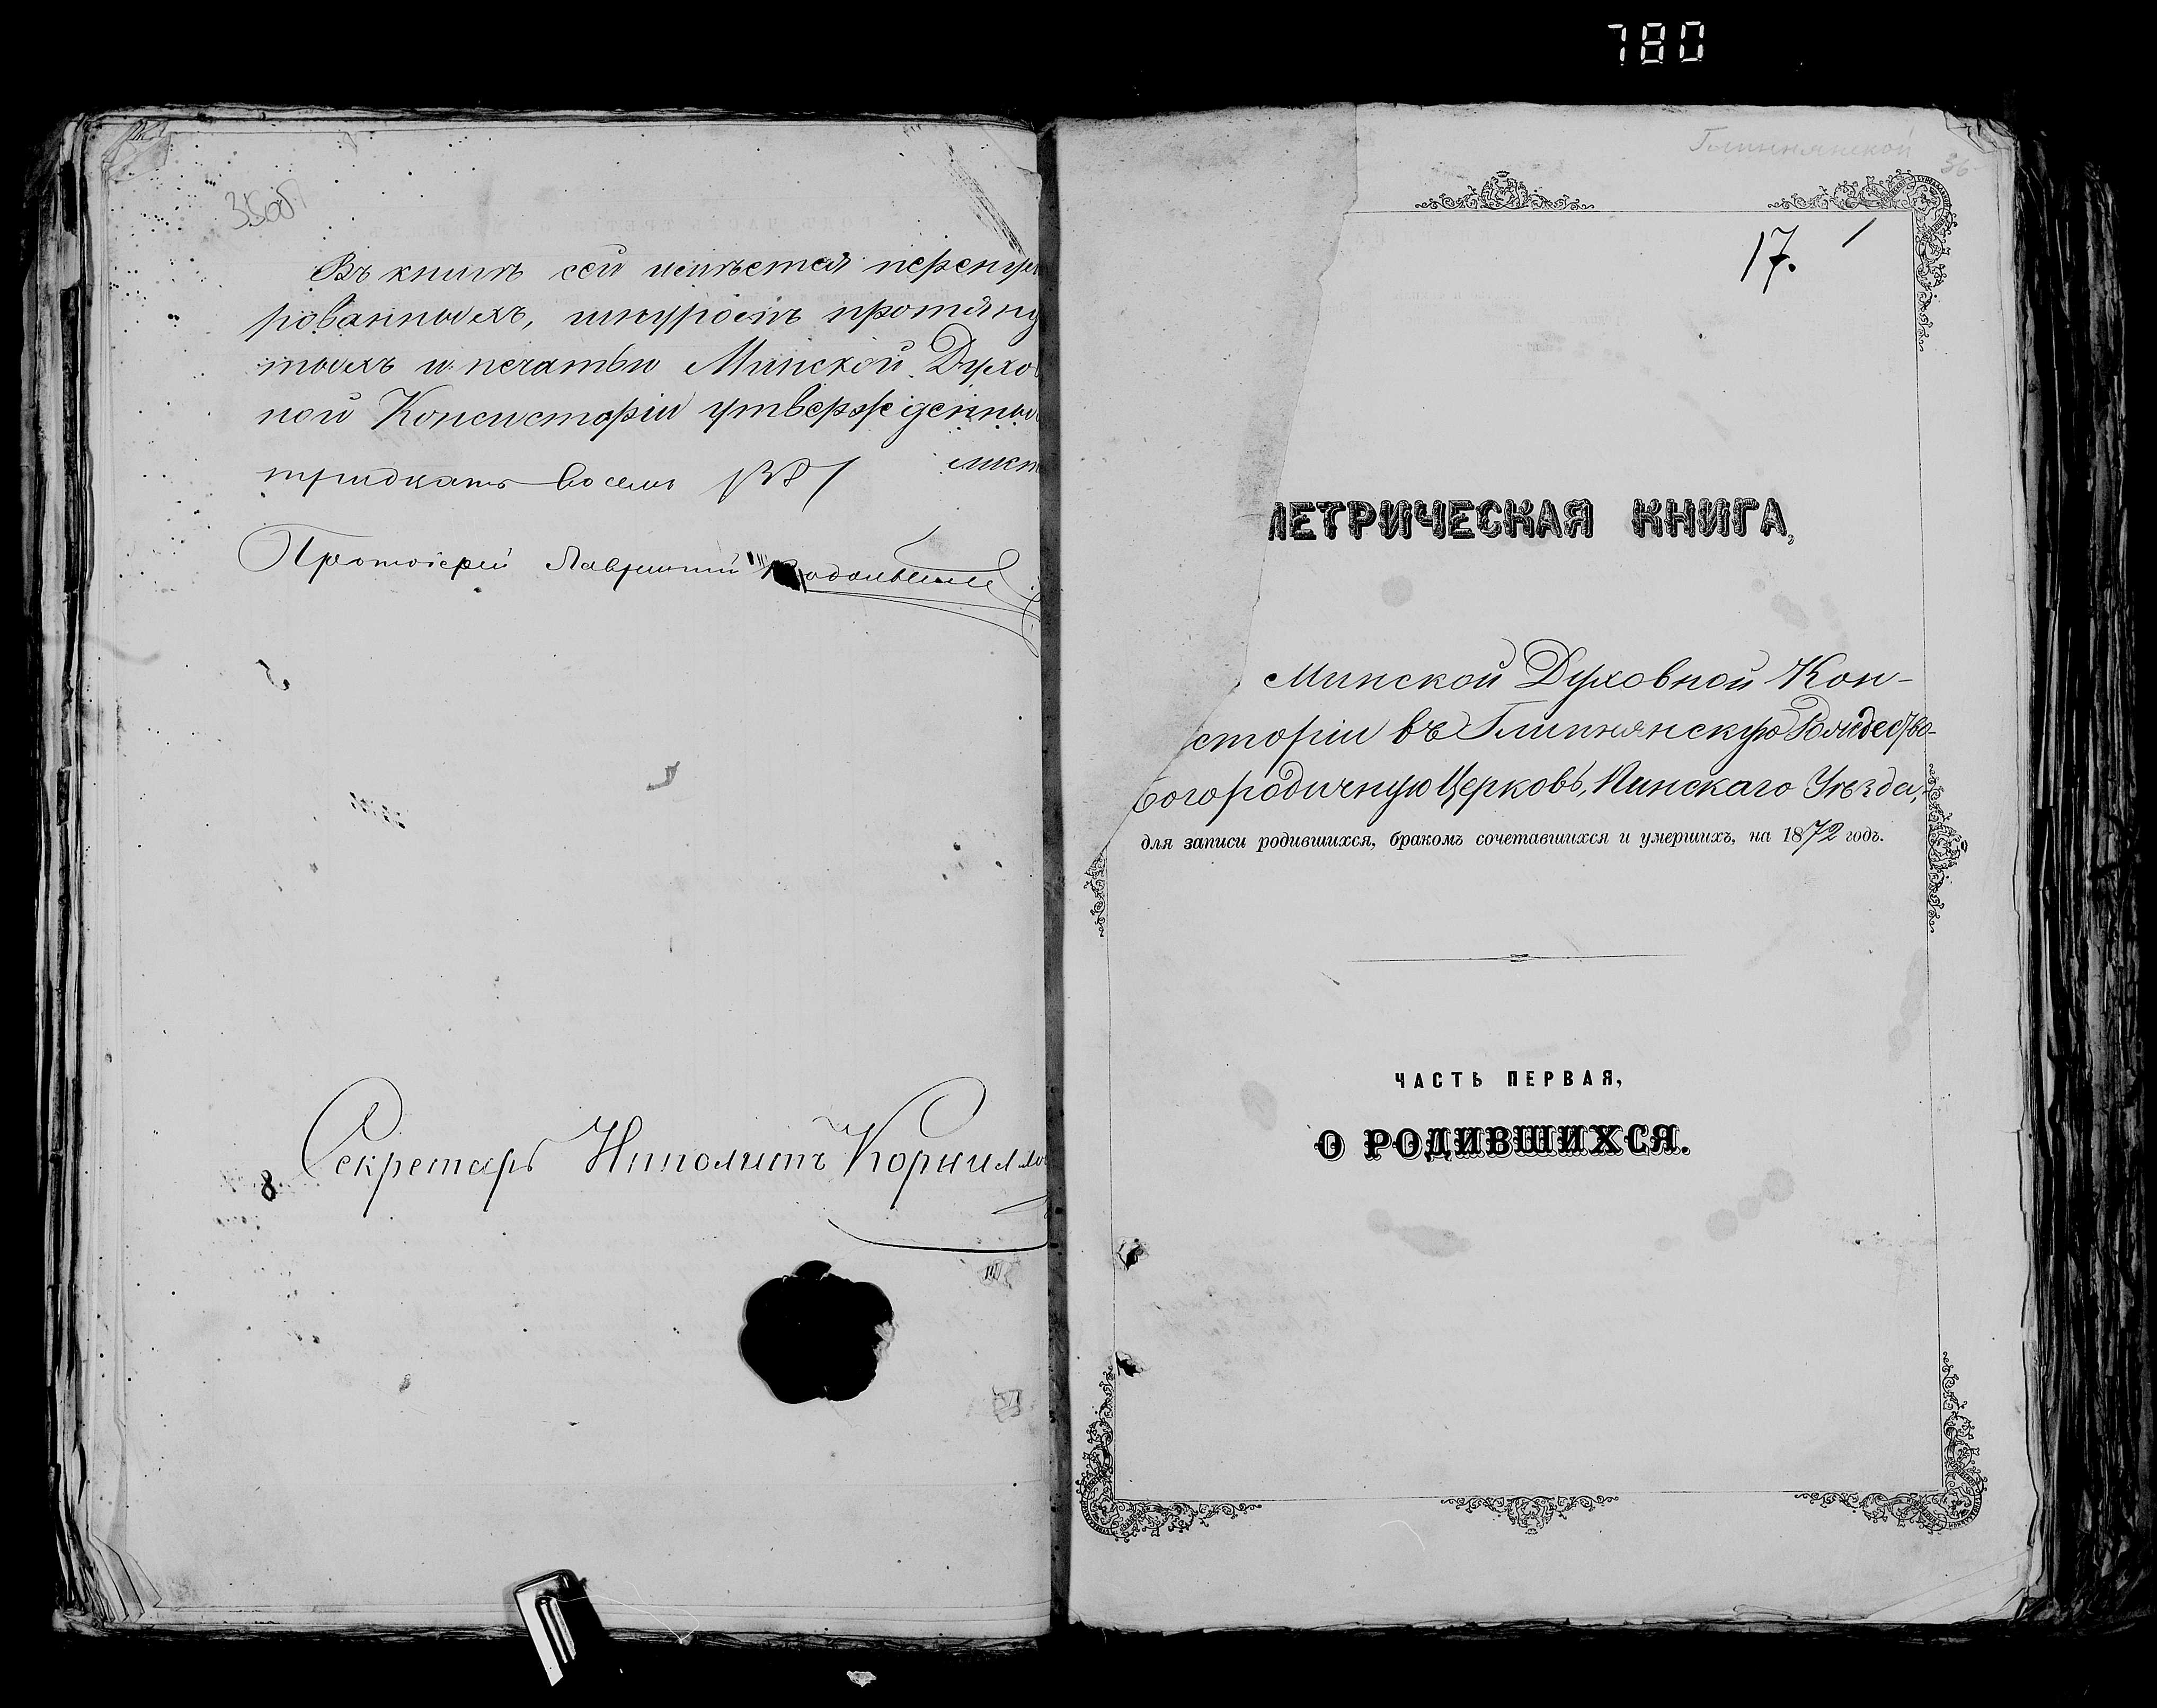 780
35об
Въ книгѣ сей имѣется перенуме
рованныхъ, шнуромъ протяну
тыхъ и печатью Минской Духов
ной Консисторіи утвержденных
лист
тридцать восемь /38/
Протоіерей Лаврентій
Секретарь Ипполитъ Корнилло
8
Глинянской
36
17.
МЕТРИЧЕСКАЯ КНИГА,
Минской Духовной Кон-
сторіи въ Глинянскую Рождество-
Богородичную Церковь, Пинскаго Уѣзда,
для записи родившихся, бракомъ сочетавшихся и умершихъ, на 1872 годъ.
ЧАСТЬ ПЕРВАЯ,
О РОДИВШИХСЯ.